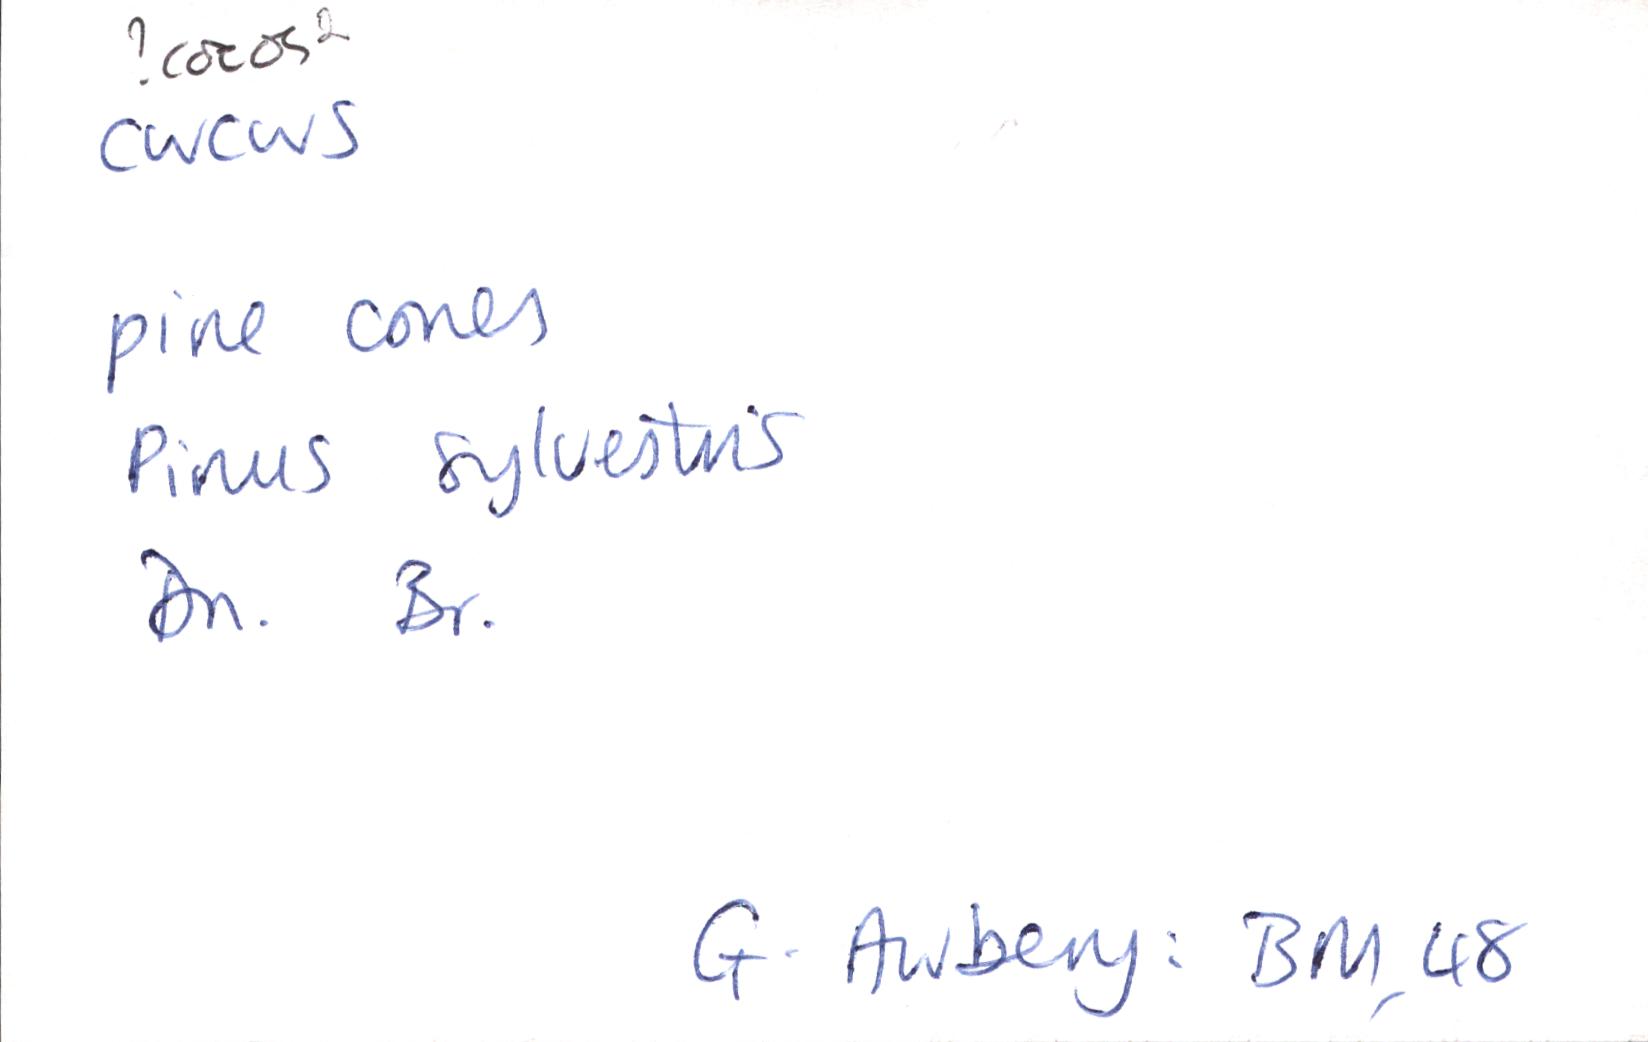 ?cocos²
cwcws
pine cones
Pinus sylvestris
Dn. Br.
G. Awbery: BM, 48